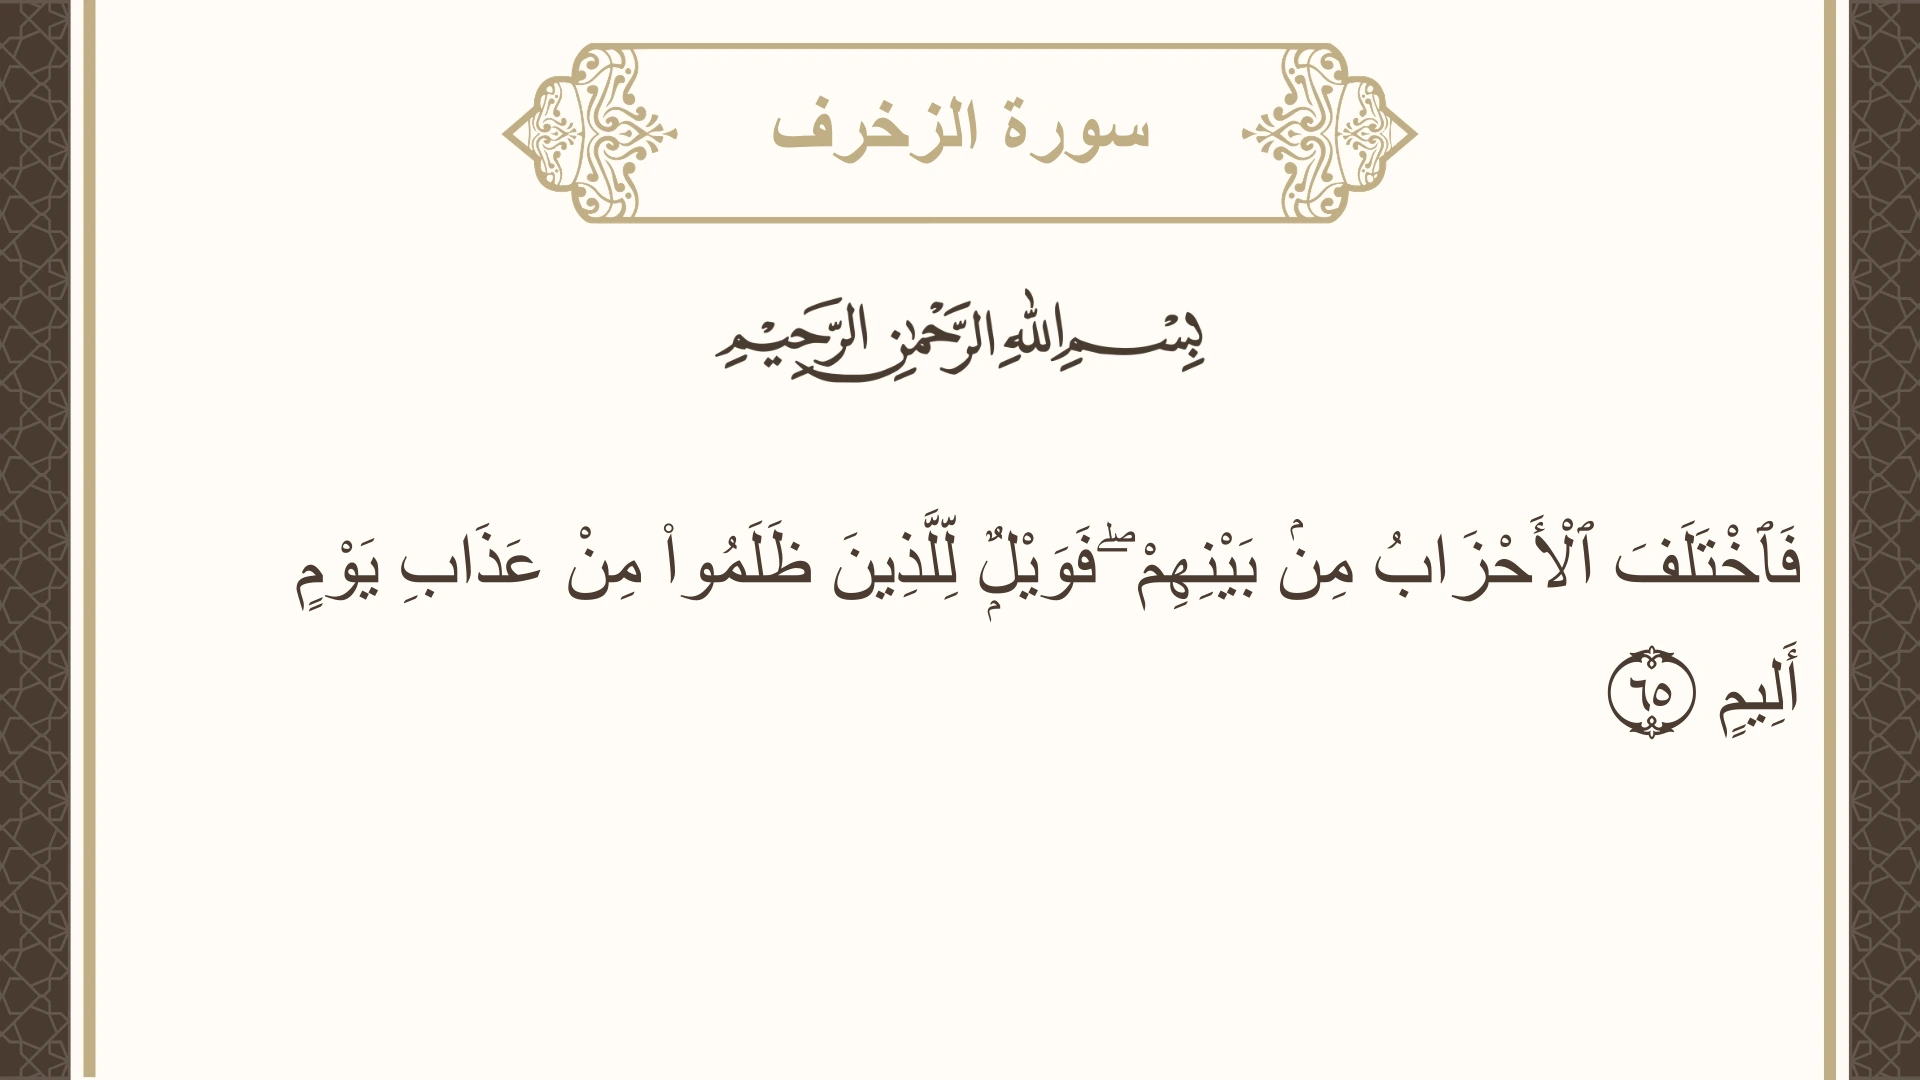 سورة الزخرف
بِسْمِ اللهِ الرَّحْمٰنِ الرَّحِيْمِ
فَٱخْتَلَفَ ٱلْأَحْزَابُ مِنۢ بَيْنِهِمْ ۖ فَوَيْلٌۭ لِّلَّذِينَ ظَلَمُوا۟ مِنْ عَذَابِ يَوْمٍ
أَلِيمٍ ٦٥